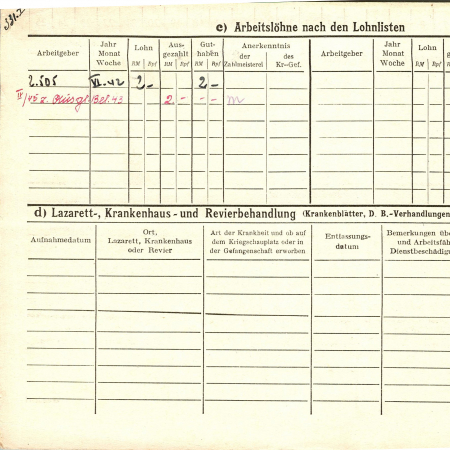 331.2
c) Arbeitslöhne nach den Lohnlisten
Arbeitgeber Jahr Monat Woche Lohn RM Rpf Ausgezahlt RM Rpf Guthaben RM Rpf Anerkenntnis der Zahlmeisterei des Kr-Gef. Arbeitgeber Jahr Monat Woche Lohn RM Rpf
2.505 VI. 42 2 - 2 -
43 2. - - -
d) Lazarett-, Krankenhaus- und Revierbehandlung (Krankenblätter, D. B.-Verhandlungen
Aufnahmedatum Ort, Lazarett, Krankenhaus oder Revier Art der Krankheit und ob auf dem Kriegsschauplatz oder in der Gefangenschaft erworben Entlassungs-datum Bemerkungen übe und Arbeitsfäh Dienstbeschädigu